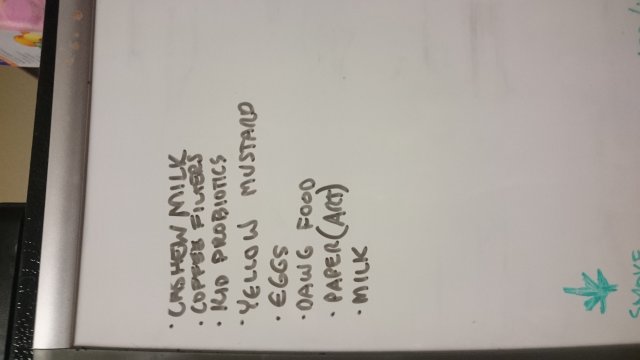 · CASHEW MILK
· COFFEE FILTERS
· KID PROBIOTICS
· YELLOW MUSTARD
· EGGS
· DAWG FOOD
· PAPER (ART)
· MILK
SMOKE